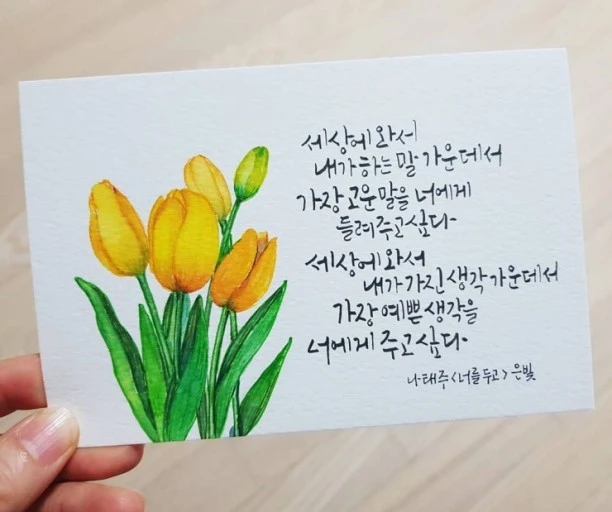 세상에 와서
내가 하는 말 가운데서
가장 고운 말을 너에게
들려주고 싶다.
세상에 와서
내가 가진 생각 가운데서
가장 예쁜 생각을
너에게 주고 싶다.
나태주 <너를 두고> 은빛